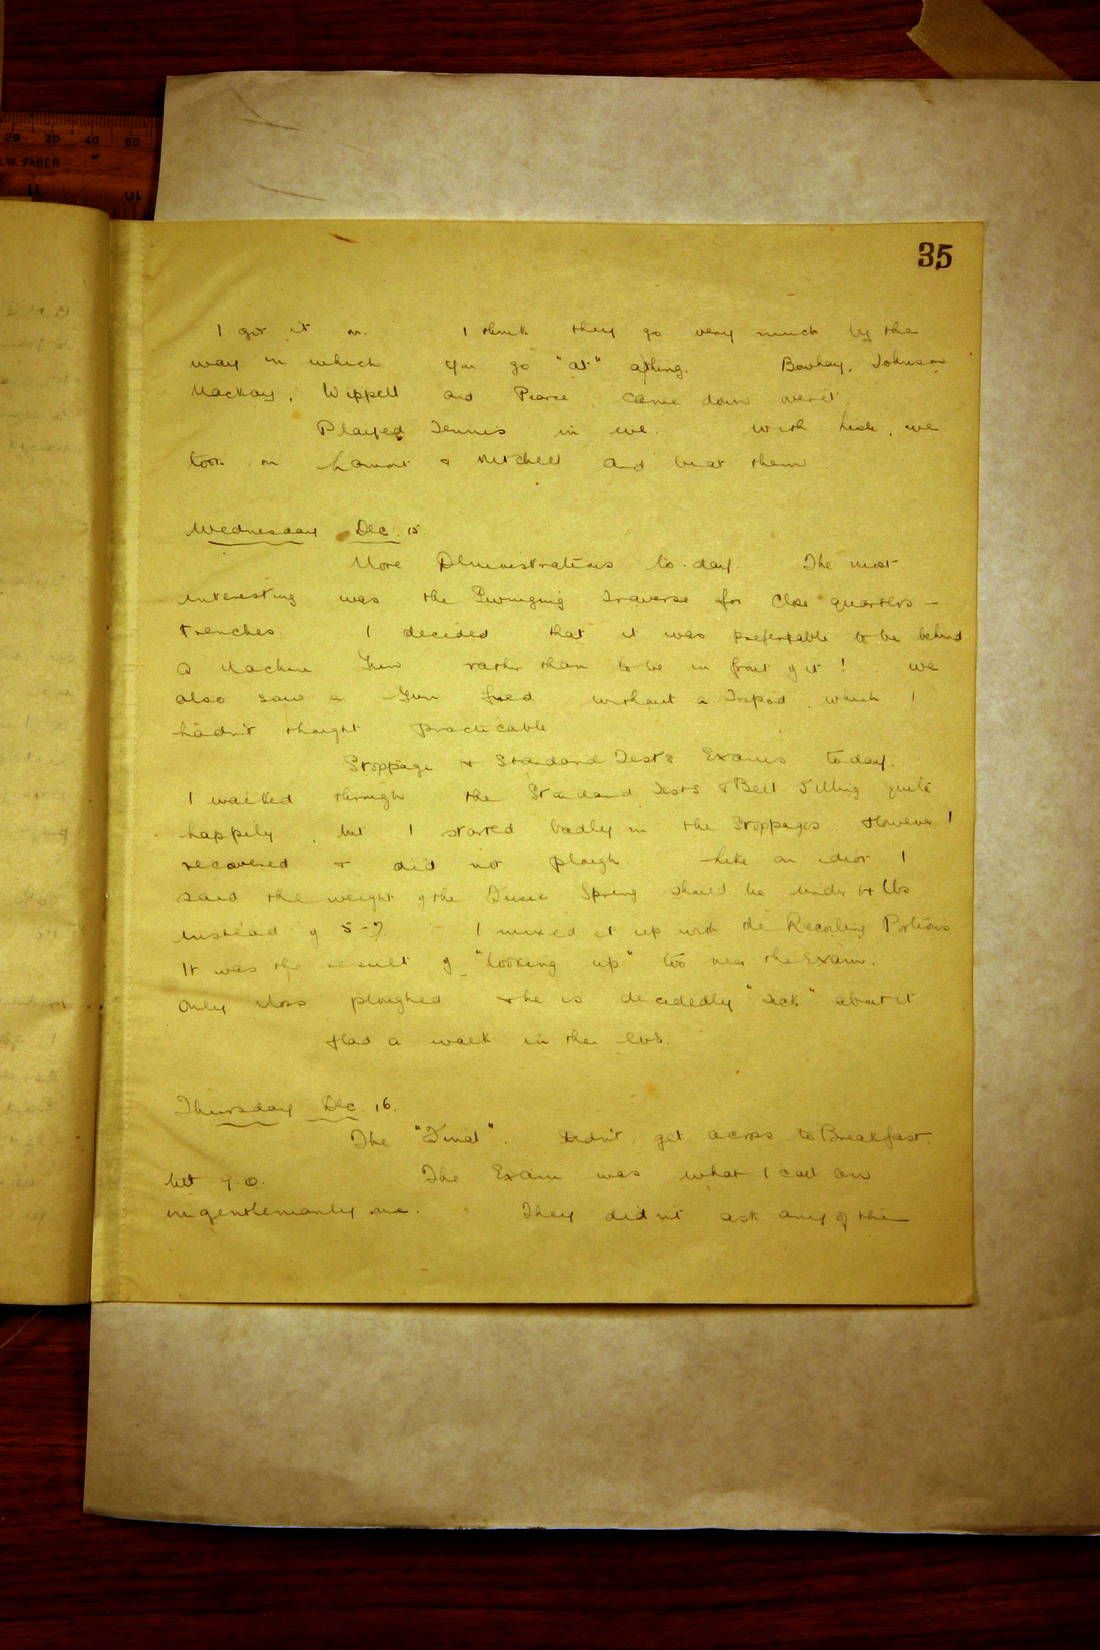 35
I got it in. I think they go very much by the
way in which you go "at" a thing. Bowhay, Johnson
Mackay, Wippell and Pearce came down over it.
Played Tennis in eve. With we
took on Lamont & Mitchell and beat them
Wednesday Dec. 15
More Demonstrations to-day. The most
interesting was the Swinging Traverse for close quarters –
trenches I decided that it was preferable to be behind
a Machine Gun rather than to be in front of it! We
also saw a Gun fired without a Tripod, which I
hadn't thought practicable
Stoppage & Standard Tests Exams today.
I waited through the Standard Tests & Belt Filling quite
happily, but I started badly in the Stoppages. However I
recovered & did not plough. Like an idiot I
said the weight of the Fusee Spring should be under 4 lbs
instead of 5-7 - I mixed it up with the Recoiling Portions
It was the result of "looking up" too near the Exam.
Only Moss ploughed & he is decidedly "sick" about it
Had a walk in the eve.
Thursday Dec. 16.
The "Final". Didn't get across to Breakfast
till 9.0. The Exam was what I call an
ungentlemanly one. They didn't ask any of the
20 30 40 50
.W. FABER
11 10